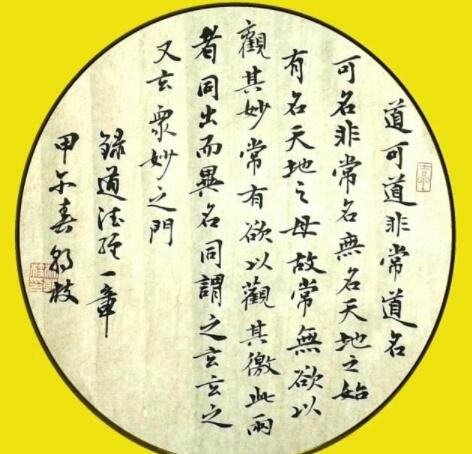 道可道非常道名
可名非常名無名天地之始
有名天地之母故常無欲以
觀其妙常有欲以觀其徼此兩
者同出而異名同謂之玄玄之
又玄衆妙之門
録道德經一章
甲午春枝